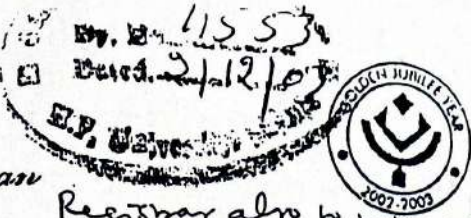 Dy. No. 11553
Dated. 2/12/03
H.P. University
GOLDEN JUBILEE YEAR
2002-2003
an
Registrar also